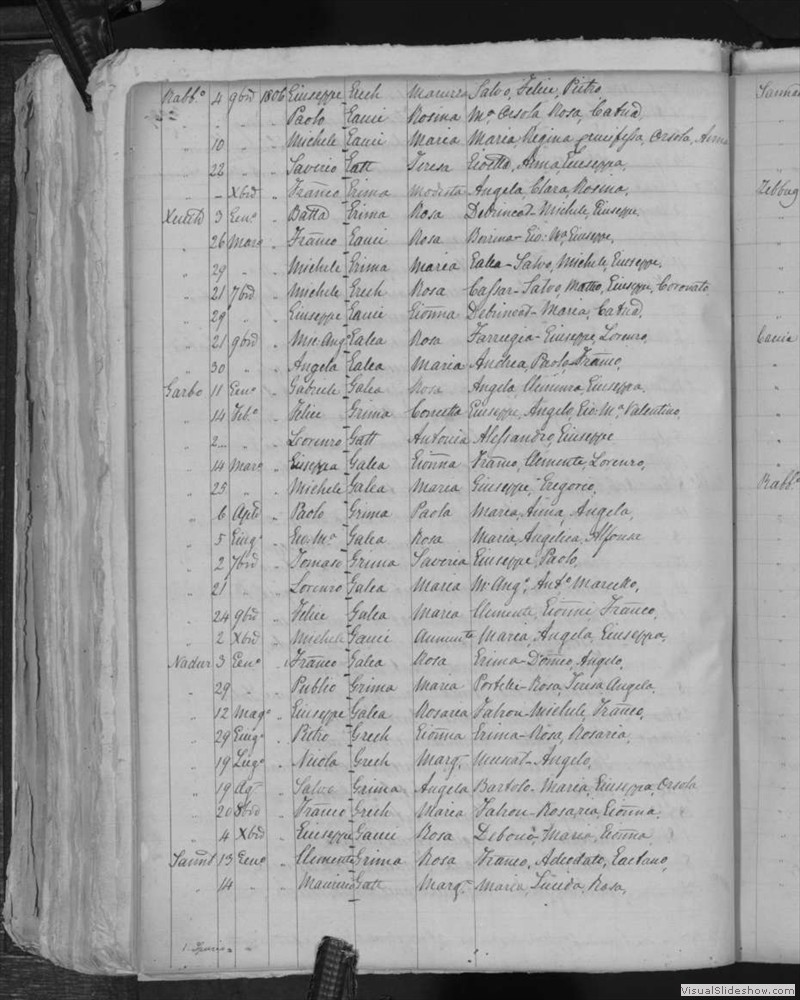 Rabb.o 4 9bre 1806 Giuseppe Grech Salvo, Felice, Pietro
" " " " Paolo Gauci Rosina M.a Orsola Rosa, Catna
" 10 " " Michele Gauci Maria Maria, Regina Orsola, Anna
" 22 " " Saverio Gatt Teresa Anna, Giuseppa,
" " Xbre " Franco Grima Modesta Angela, Clara, Rosina,
3 Gen.o " Batta Grima Rosa Debrincat - Michele, Giuseppe
" 26 Maro " Franco Gauci Rosa Gio: M.a Giuseppe,
" 29 " " Michele Grima Maria Galea - Salvo, Michele, Giuseppe,
" 21 7bre " Michele Grech Rosa Cassar - Salvo, Matteo, Giuseppe, Coronato
" 29 " " Giuseppe Gauci Gionna Debrincat - Maria, Catna,
" 21 9bre " Mic. Ang.o Galea Rosa Farrugia - Giuseppe, Lorenzo,
" 30 " " Angelo Galea Maria Andrea, Paolo, Franco,
Garbo 11 Gen.o " Gabriele Galea Rosa Angela, Giuseppa,
" 14 Feb.o " Felice Grima Concetta Giuseppe, Angelo, Gio: M.a Valentino,
" 2 " " Lorenzo Gatt Antonia Alessandro, Giuseppe
" 14 Maro " Giuseppe Galea Gionna Franco, Clemente, Lorenzo,
" 25 " " Michele Galea Maria Giuseppe, Gregorio,
" 6 Aple " Paolo Grima Paola Maria, Anna, Angela,
" 5 Giug.o " Gio: M.a Galea Rosa Maria, Angelica, Alfonso
" 2 7bre " Tomaso Grima Saveria Giuseppe, Paolo,
" 21 " " Lorenzo Galea Maria M. Ang.o, Ant.o Marcello,
" 24 9bre " Felice Galea Maria Clemente, Gionni, Franco,
" 2 Xbre " Michele Gauci Annunta Maria, Angela, Giuseppa,
Nadur 3 Gen.o " Franco Galea Rosa Grima - Domco, Angelo,
" 29 " " Publio Grima Maria Portelli - Rosa, Teresa, Angela,
" 12 Mag.o " Giuseppe Galea Rosaria Michele, Franco,
" 29 Giug.o " Pietro Grech Gionna Grima - Rosa, Rosaria,
" 19 Lug.o " Nicola Grech Marg.a Muscat - Angelo,
" 19 Ag.o " Salvo Grima Angela Bartolo - Maria, Giuseppa, Orsola
" 20 8bre " Franco Grech Maria Rosaria, Gionna,
" 4 Xbre " Giuseppe Gauci Rosa Debono - Maria, Gionna
Sannat 13 Gen.o " Clemente Grima Rosa Franco, Adeodato, Gaetano,
" 14 " " Maurizio Gatt Marg.a Maria, Rosa,
Sannat
Zebbug
Rabb.o
VisualSlideshow.com